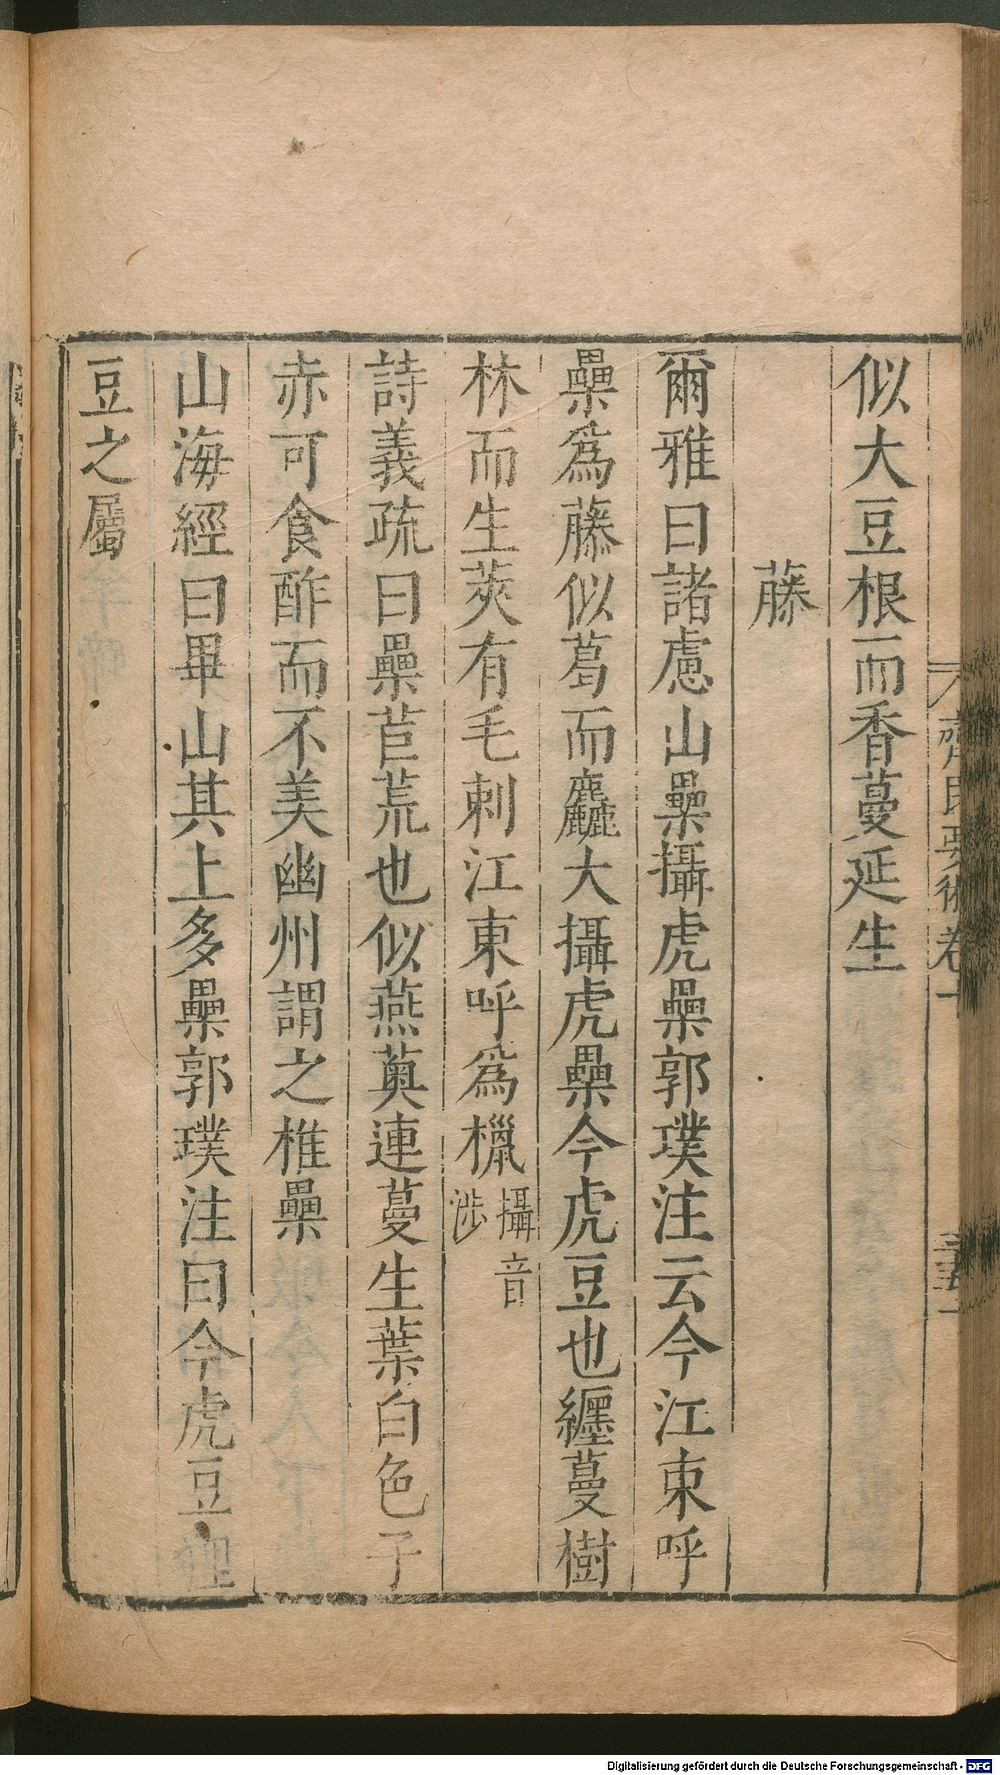 齊民要術卷十
似大豆根而香蔓延生
藤
爾雅曰諸慮山櫐攝虎櫐郭璞注云今江東呼
櫐爲藤似葛而麤大攝虎櫐今虎豆也纏蔓樹
林而生莢有毛刺江東呼爲欇攝音涉
詩義疏曰櫐苣荒也似燕薁連蔓生葉白色子
赤可食酢而不美幽州謂之椎櫐
山海經曰畢山其上多櫐郭璞注曰今虎豆貍
豆之屬
Digitalisierung gefördert durch die Deutsche Forschungsgemeinschaft - DFG